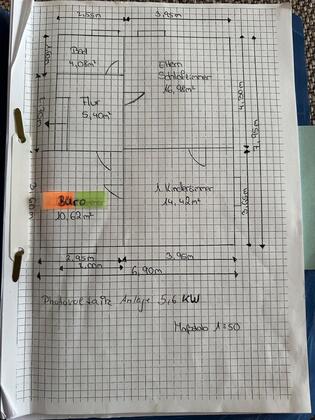 2,55m
3,95m
Bad
4,08m²
Eltern
Schlafzimmer
16,98m²
Flur
5,40m²
4,30m
7,95m
3,60m
Büro
10,62m²
1. Kinderzimmer
14,42m²
3,65m
2,95m
3,95m
2,00m
6,90m
Photovoltaik Anlage 5,6 KW
Maßstab 1:50